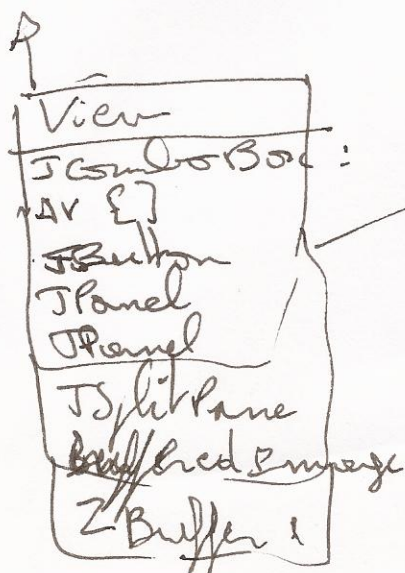 View
JComboBox :
JButton
JPanel
JPanel
JSplitPane
BufferedImage
ZBuffer